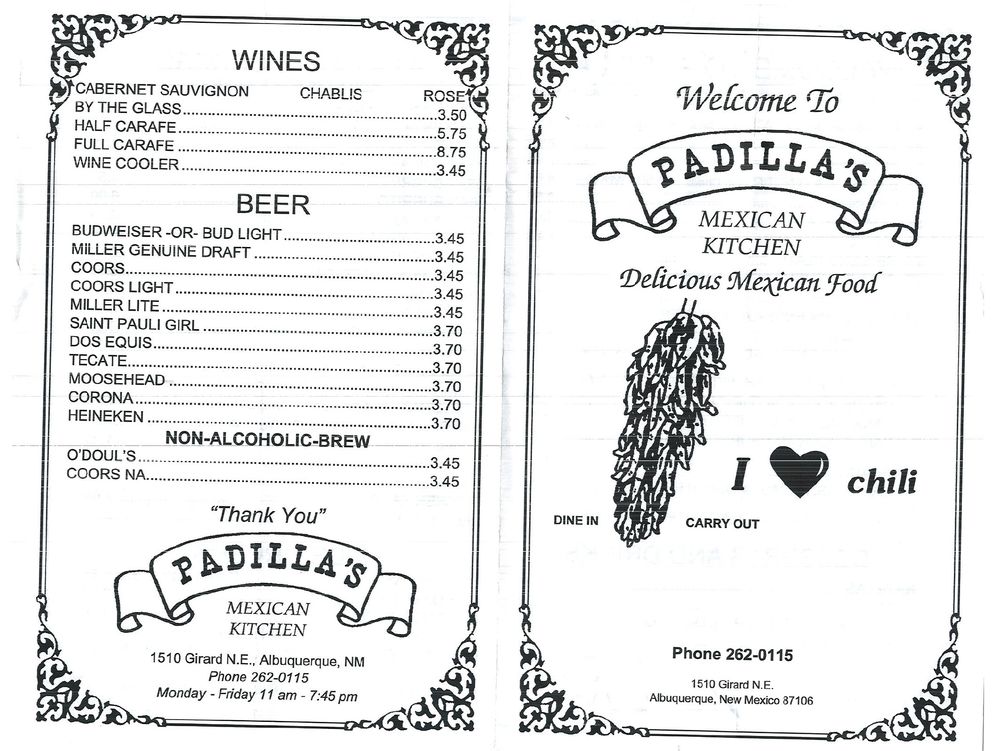 WINES
CABERNET SAUVIGNON CHABLIS ROSE'
BY THE GLASS 3.50
HALF CARAFE 5.75
FULL CARAFE 8.75
WINE COOLER 3.45
BEER
BUDWEISER -OR- BUD LIGHT 3.45
MILLER GENUINE DRAFT 3.45
COORS 3.45
COORS LIGHT 3.45
MILLER LITE 3.45
SAINT PAULI GIRL 3.70
DOS EQUIS 3.70
TECATE 3.70
MOOSEHEAD 3.70
CORONA 3.70
HEINEKEN 3.70
NON-ALCOHOLIC-BREW
O'DOUL'S 3.45
COORS NA 3.45
“Thank You”
PADILLA'S
MEXICAN
KITCHEN
1510 Girard N.E., Albuquerque, NM
Phone 262-0115
Monday - Friday 11 am - 7:45 pm
Welcome To
PADILLA'S
MEXICAN
KITCHEN
Delicious Mexican Food
I chili
DINE IN CARRY OUT
Phone 262-0115
1510 Girard N.E.
Albuquerque, New Mexico 87106